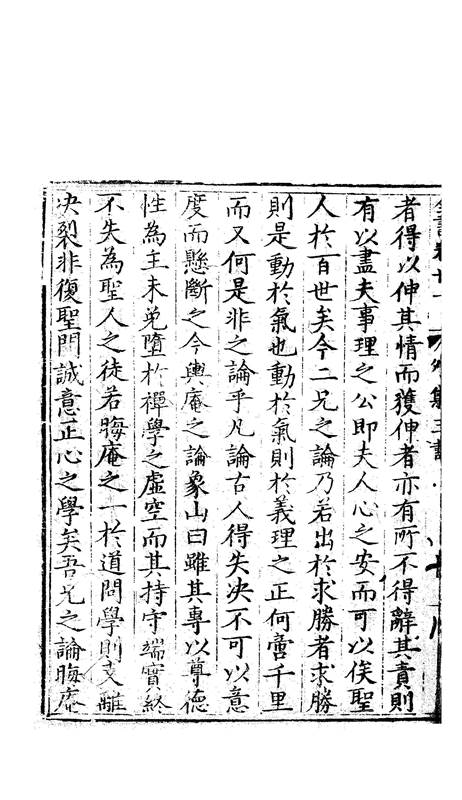 者得以伸其情而獲伸者亦有所不得辭其責則
有以盡夫事理之公即夫人心之安而可以俟聖
人於百世矣今二兄之論乃若出於求勝者求勝
則是動於氣也動於氣則於義理之正何啻千里
而又何是非之論乎凡論古人得失決不可以意
度而懸斷之今輿庵之論象山曰雖其專以尊德
性為主未免墮於禪學之虛空而其持守端實終
不失為聖人之徒若晦庵之一於道問學則支離
决裂非復聖門誠意正心之學矣吾兄之論晦庵